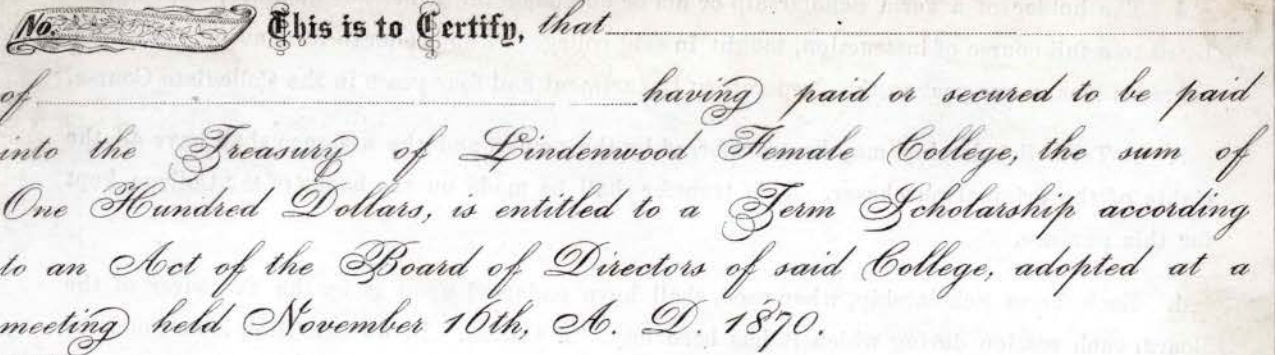 No. This is to Certify, that
of having paid or secured to be paid
into the Treasury of Lindenwood Female College, the sum of
One Hundred Dollars, is entitled to a Term Scholarship according
to an Act of the Board of Directors of said College, adopted at a
meeting held November 16th, A. D. 1870.